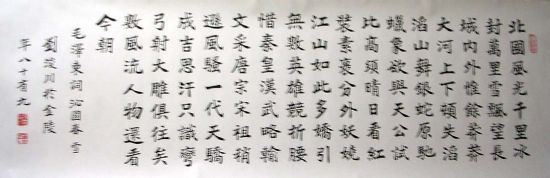 北國風光千里冰
封萬里雪飄望長
城內外惟餘莽莽
大河上下頓失滔
滔山舞銀蛇原馳
蠟象欲與天公試
比高須晴日看紅
裝素裹分外妖嬈
江山如此多嬌引
無數英雄競折腰
惜秦皇漢武略輸
文采唐宗宋祖稍
遜風騷一代天驕
成吉思汗只識彎
弓射大雕俱往矣
數風流人物還看
今朝
毛澤東詞沁園春 雪
劉川於金陵
年八十有九